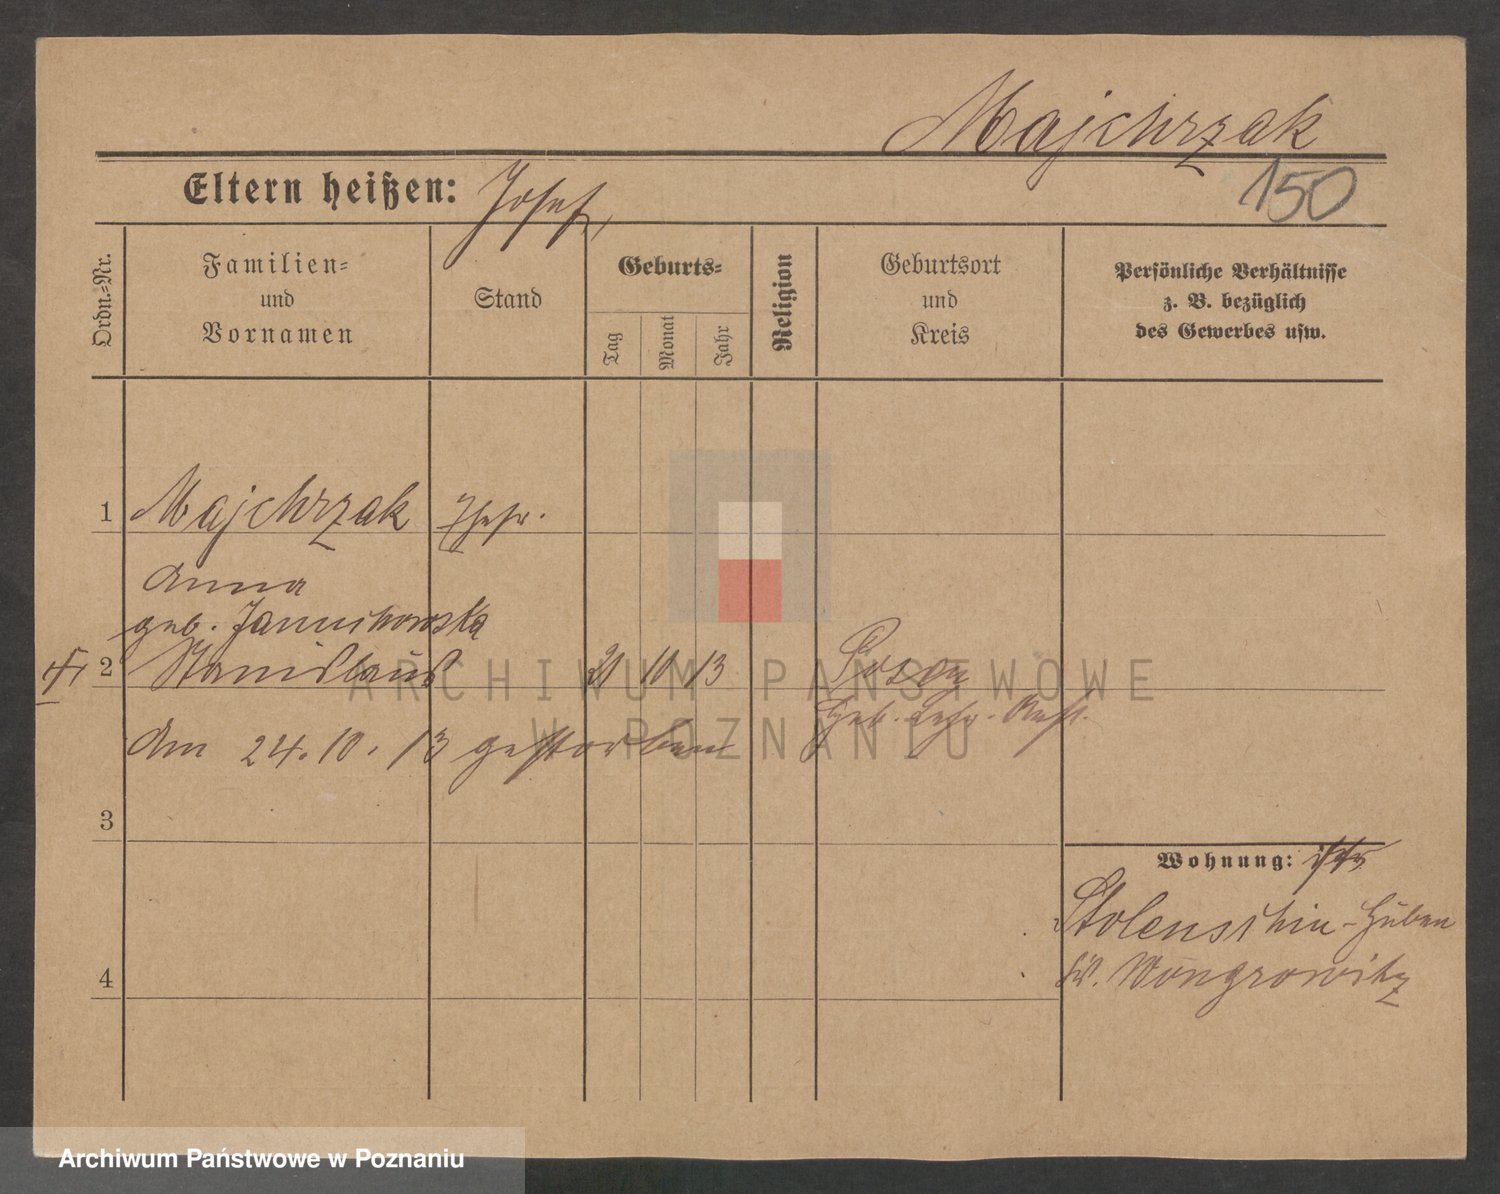 Majchrzak
150
Eltern heißen: Josef,
Ordn.-Nr.
Familien-
und
Vornamen
Stand
Geburts-
Tag
Monat
Jahr
Religion
Geburtsort
und
Kreis
Persönliche Verhältnisse
z. B. bezüglich
des Gewerbes usw.
1 Majchrzak Ehefr.
Anna
geb.
2 Stanislaus 21 10 13 Posen
Geb. Anst.
am 24.10.13 gestorben
3
Wohnung:
4
Kr. Wongrowitz
ARCHIWUM PAŃSTWOWE
W POZNANIU
Archiwum Państwowe w Poznaniu